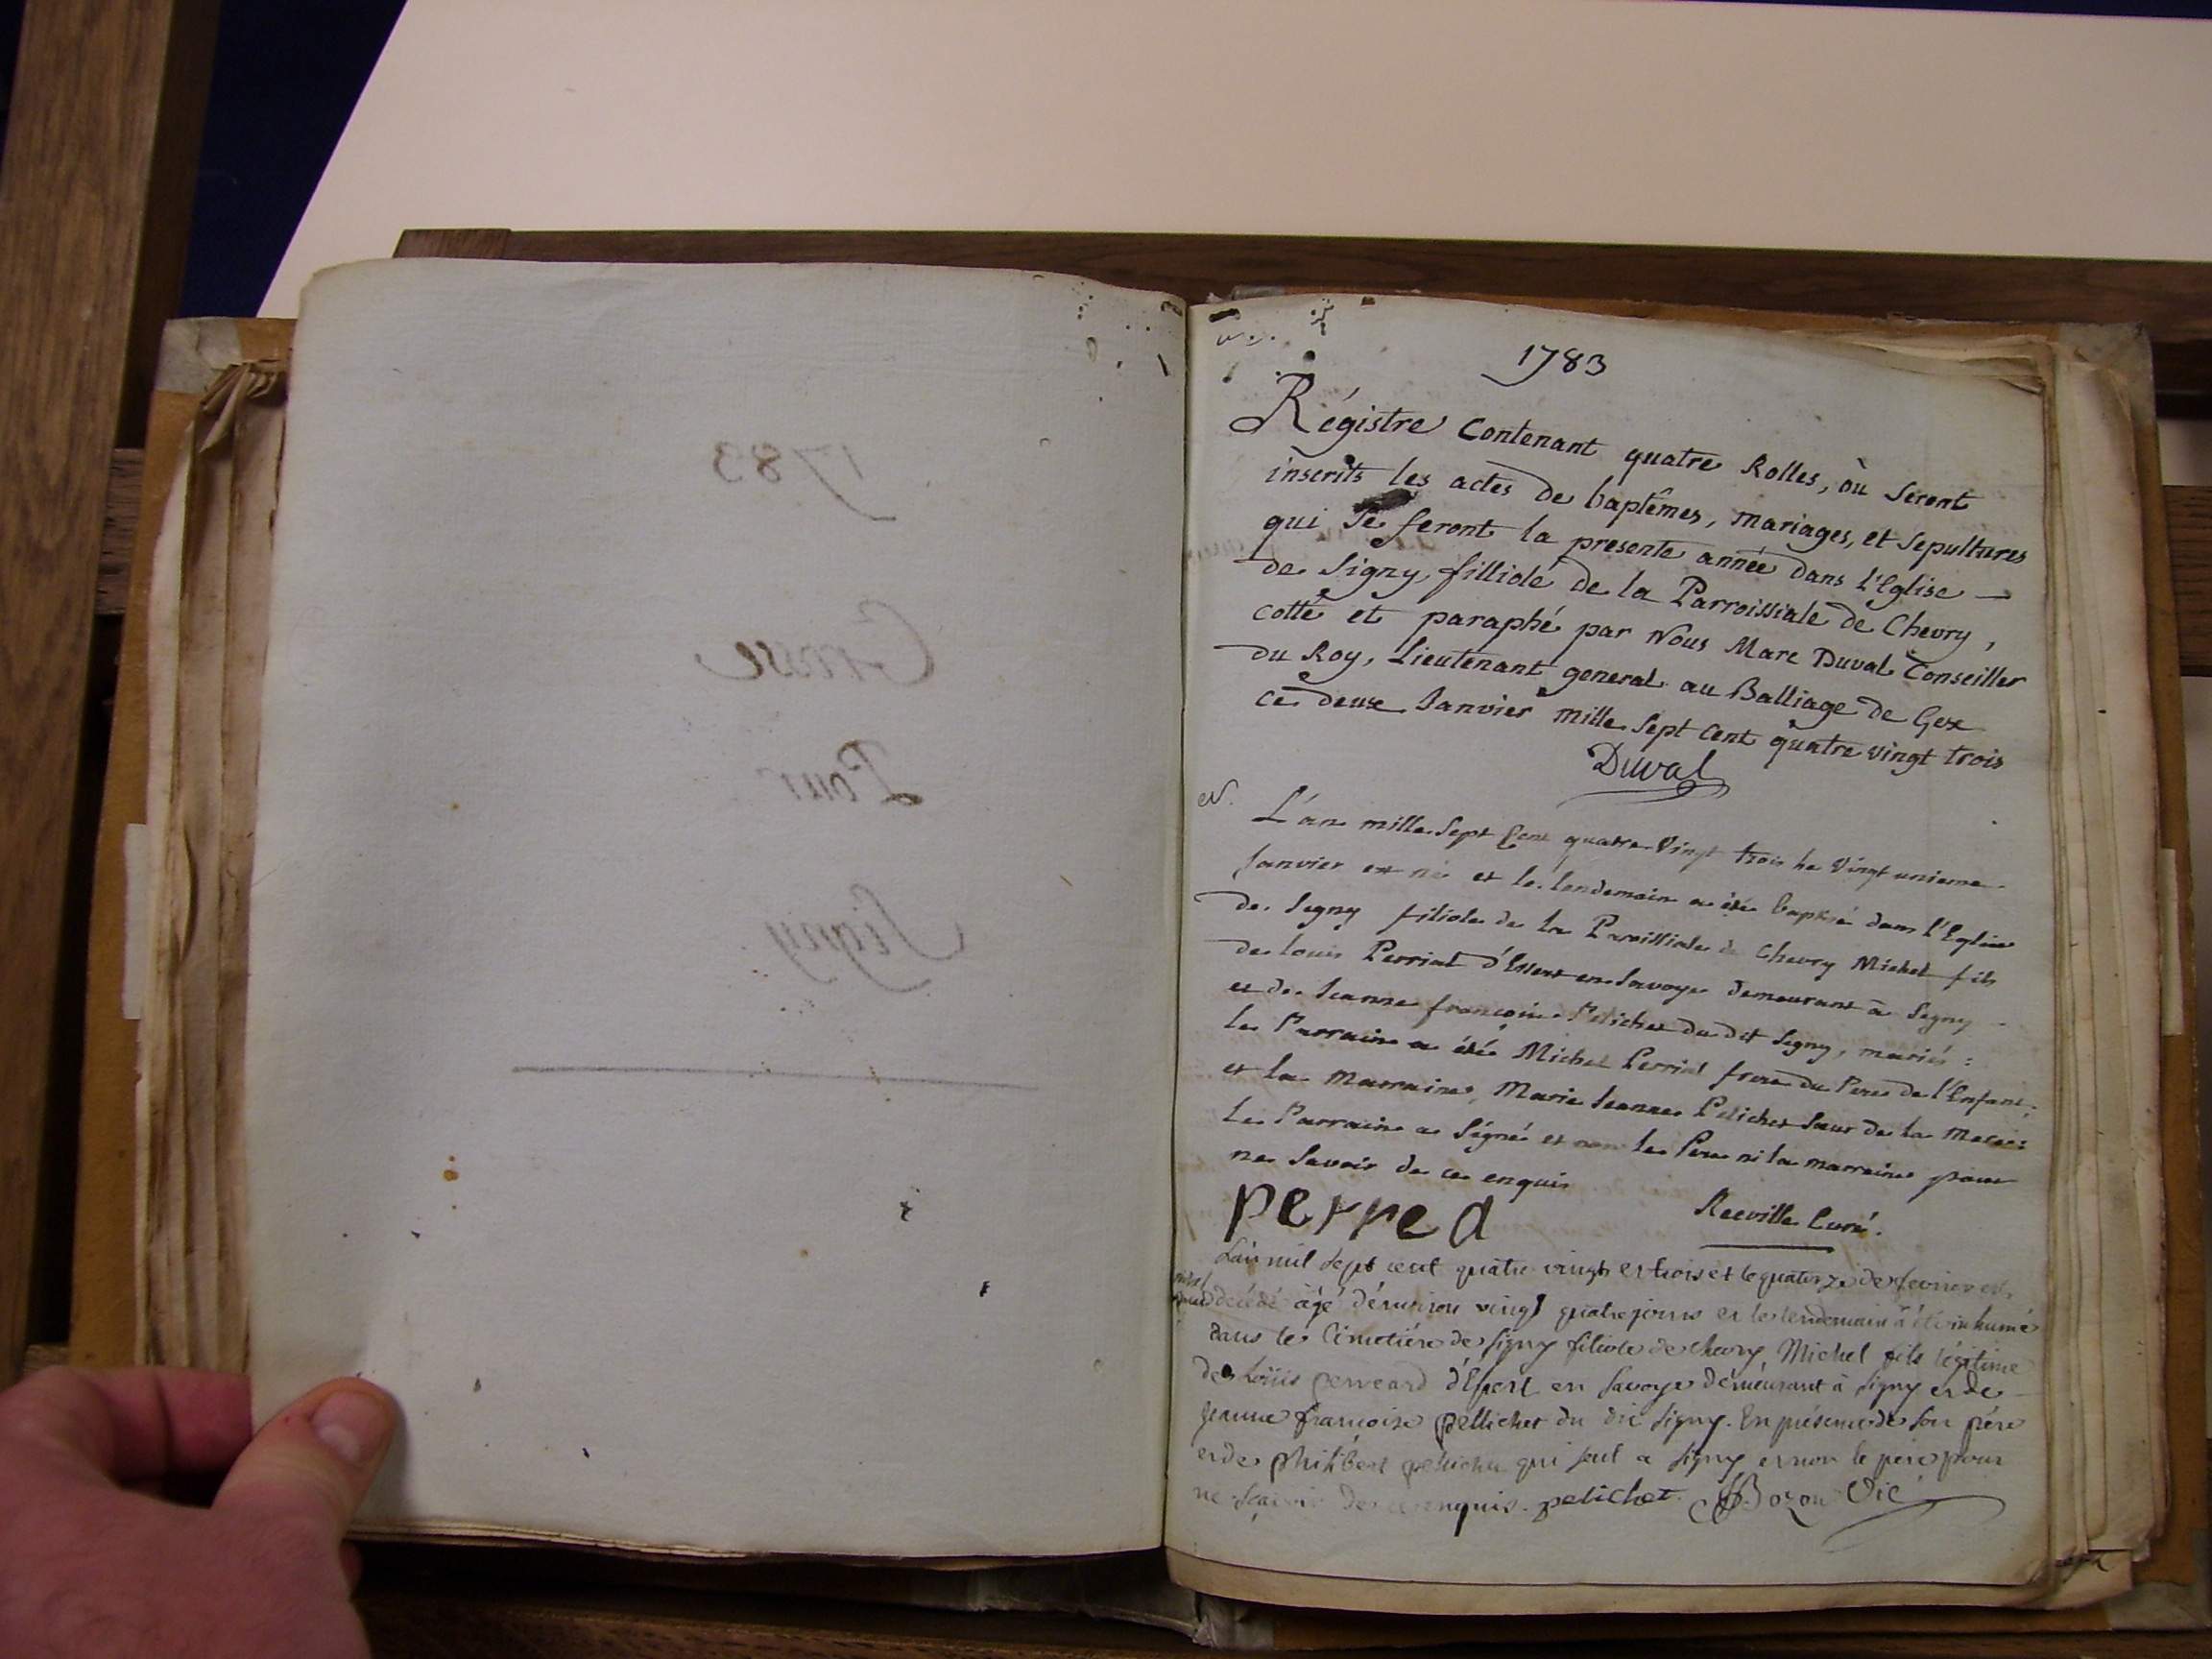 1783
Grosse
Pour
Signy
1783
Régistre Contenant quatre Rolles, où seront
inscrits les actes de baptêmes, mariages, et sepultures
qui se feront la presente année dans l'Eglise —
de Signy, filliole de la Parroissiale de Chevry,
cotté et paraphé par Nous Marc Duval Conseiller
du Roy, Lieutenant general au Balliage de Gex
ce deux Janvier mille sept cent quatre vingt trois
Duval
N. L'an mille sept Cent quatre Vingt trois le Vingt unieme
Janvier est né et le lendemain a été baptisé dans l'Eglise
de Segny filiole de la Paroissiale de Chevry Michel fils
de louis Perriat d'Essert en Savoye demeurant à Segny
et de Jeanne françoise Pelichet du dit Segny, mariés:
le Parrain a été Michel Perriat frere du Pere de l'Enfant;
et la marraine, Marie Jeanne Pelichet Sœur de la Mere:
le Parrain a Signé et non le Pere ni la marraine pour
ne Savoir de ce enquis
perred Reeville Curé.
L'an mil sept cent quatre vingt et trois et le quatorze de fevrier est
décédé agé d'environ vingt quatre jours et le lendemain a été inhumé
dans le Cimetiére de signy filiole de chevry Michel fils légitime
de Loüis perreard d'Essert en Savoye démeurant à signy et de
Jeanne françoise pellichet du dit signy. En présence de son père
et de philibert pelichet qui seul a signy et non le père pour
ne sçavoir de ce enquis. pelichet Bozon Vic